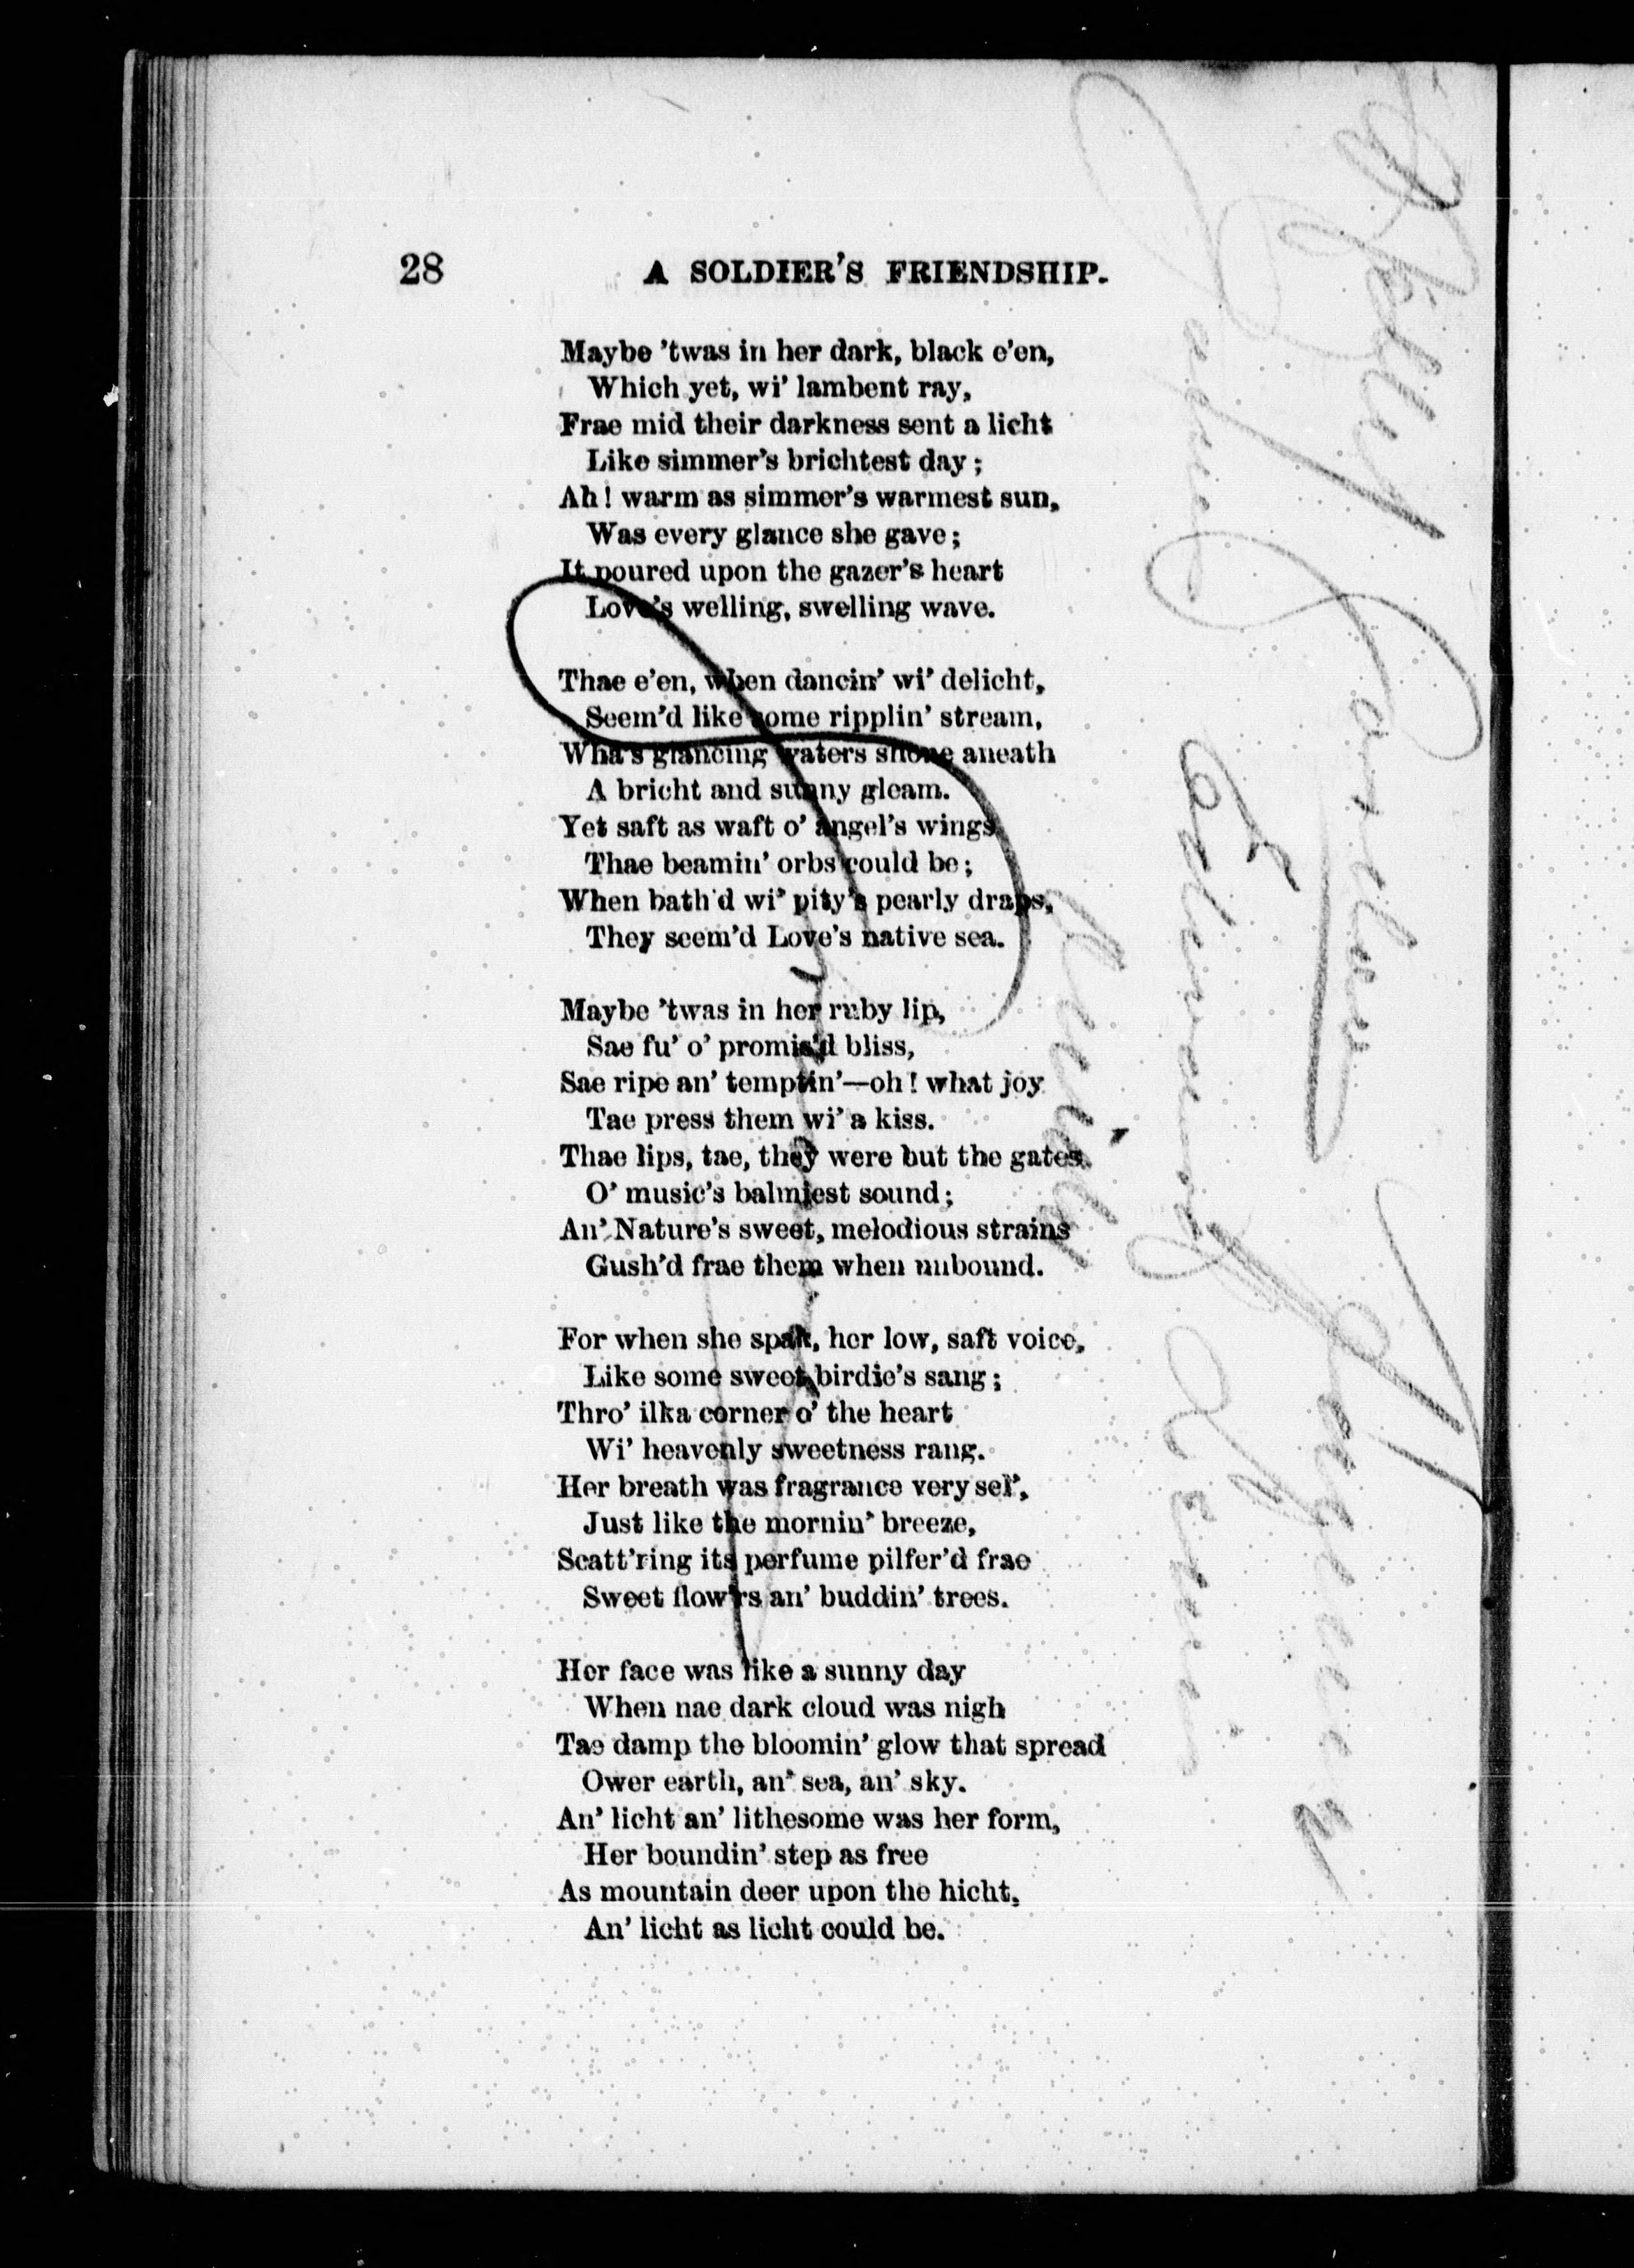 28 A SOLDIER'S FRIENDSHIP.
Maybe 'twas in her dark, black e'en,
Which yet, wi' lambent ray,
Frae mid their darkness sent a licht
Like simmer's brichtest day;
Ah! warm as simmer's warmest sun,
Was every glance she gave;
It poured upon the gazer's heart
Love's welling, swelling wave.
Thae e'en, when dancin' wi' delicht,
Seem'd like some ripplin' stream,
Wha's glancing waters shone aneath
A bricht and sunny gleam.
Yet saft as waft o' angel's wings
Thae beamin' orbs could be;
When bath'd wi' pity's pearly draps,
They seem'd Love's native sea.
Maybe 'twas in her ruby lip,
Sae fu' o' promis'd bliss,
Sae ripe an' temptin'—oh! what joy
Tae press them wi' a kiss.
Thae lips, tae, they were but the gates
O' music's balmiest sound;
An' Nature's sweet, melodious strains
Gush'd frae them when unbound.
For when she spak, her low, saft voice,
Like some sweet birdie's sang;
Thro' ilka corner o' the heart
Wi' heavenly sweetness rang.
Her breath was fragrance very sel',
Just like the mornin' breeze,
Scatt'ring its perfume pilfer'd frae
Sweet flow'rs an' buddin' trees.
Her face was like a sunny day
When nae dark cloud was nigh
Tae damp the bloomin' glow that spread
Ower earth, an' sea, an' sky.
An' licht an' lithesome was her form,
Her boundin' step as free
As mountain deer upon the hicht,
An' licht as licht could be.